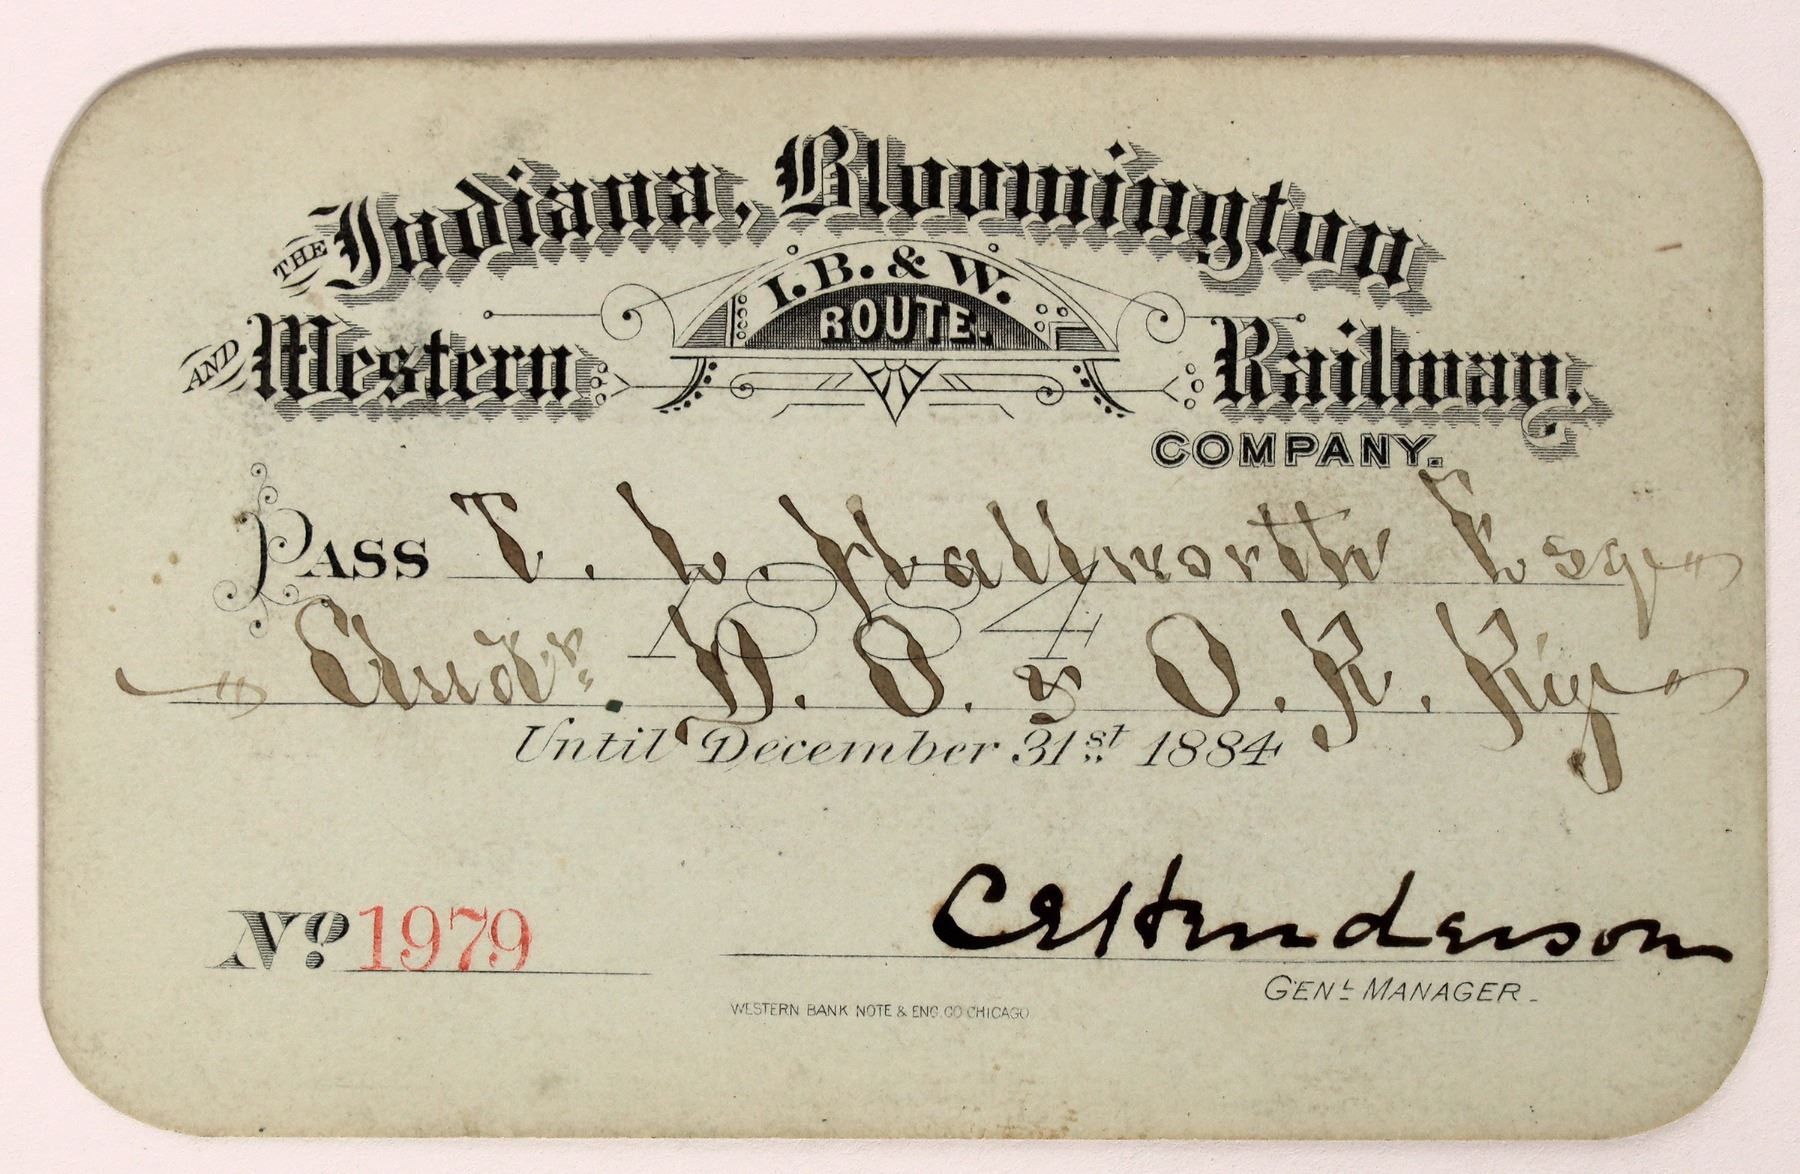 THE Indiana, Bloomington
I. B. & W.
ROUTE.
AND Western Railway.
COMPANY.
PASS T. L. Hallworth Esq
1884
Audr. D. O. & O. R. Ry
Until December 31st 1884
No. 1979
C E Henderson
GENL MANAGER.
WESTERN BANK NOTE & ENG. CO CHICAGO.